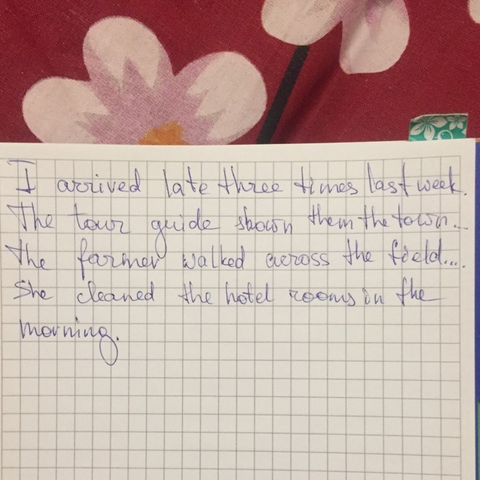 I arrived late three times last week.
The tour guide shown them the town...
The farmer walked across the field....
She cleaned the hotel rooms in the
morning.